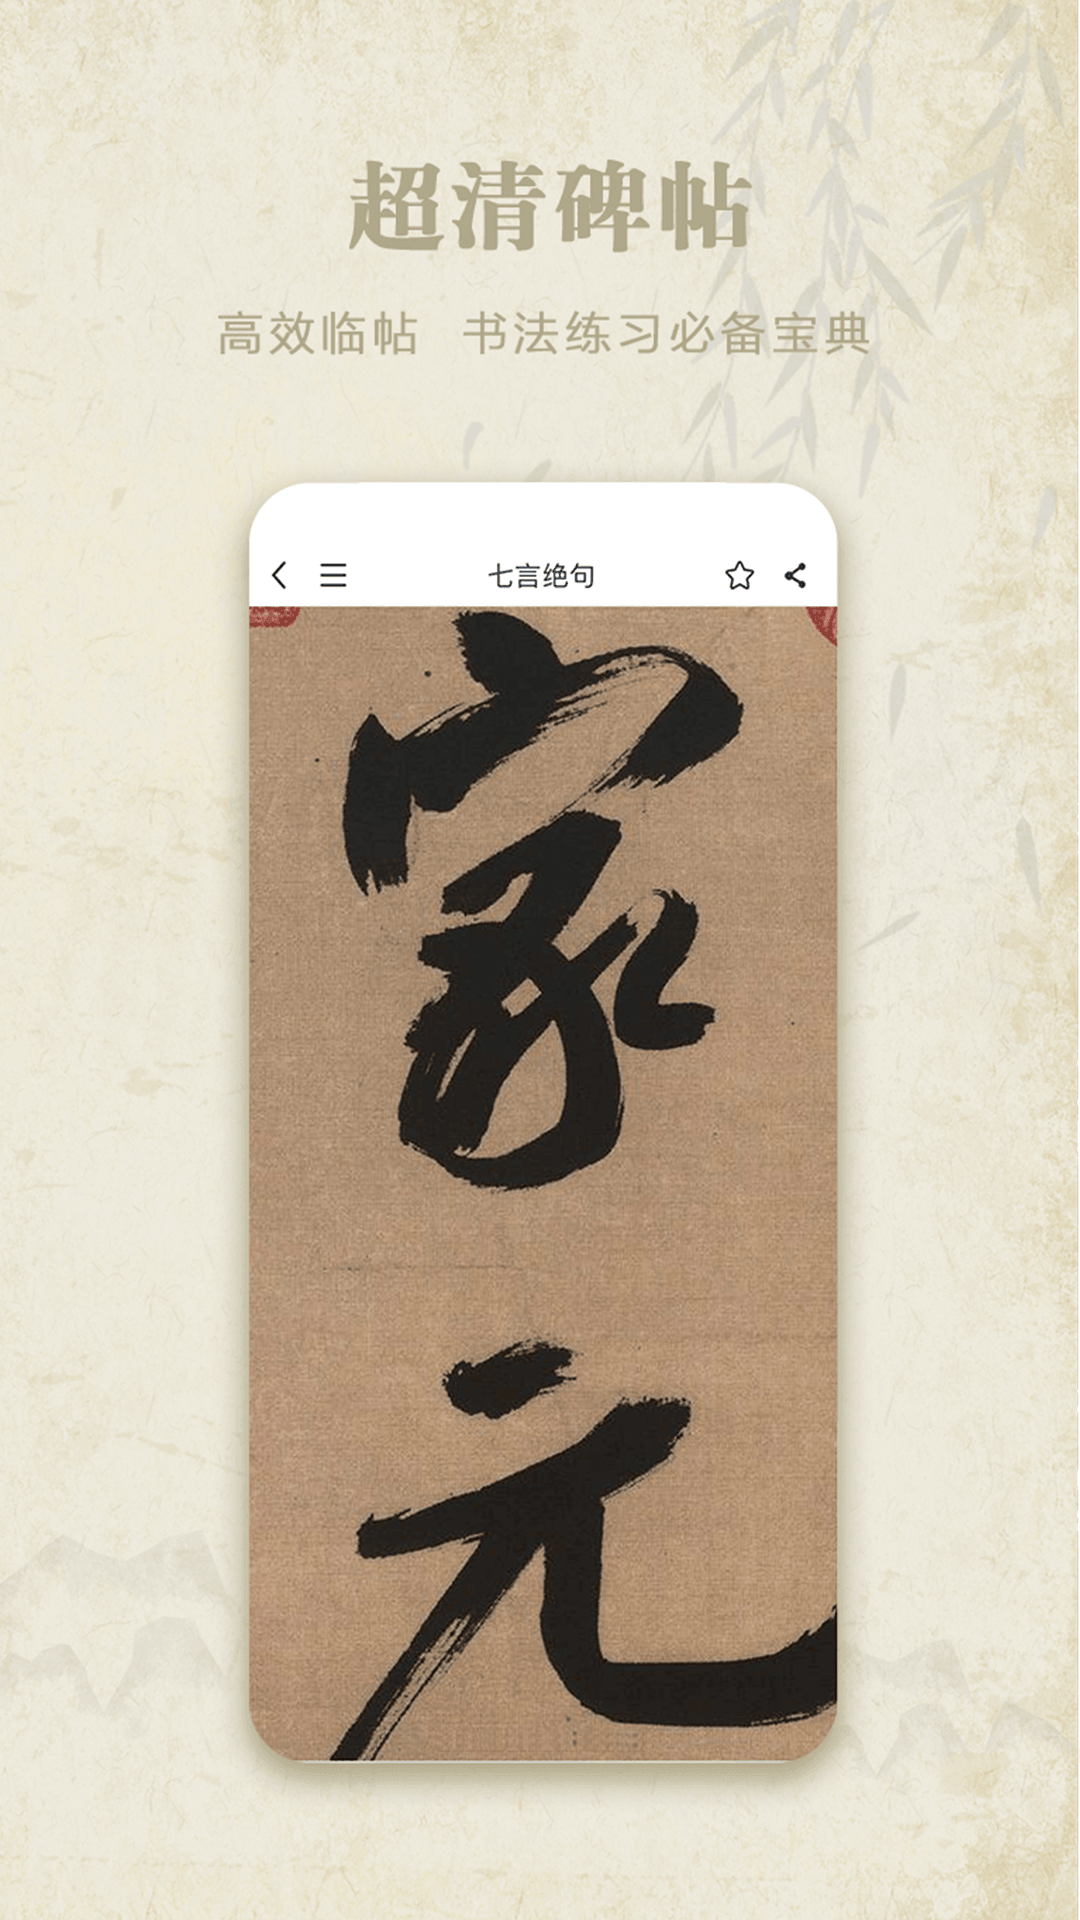 超清碑帖
高效临帖 书法练习必备宝典
七言绝句
家
元